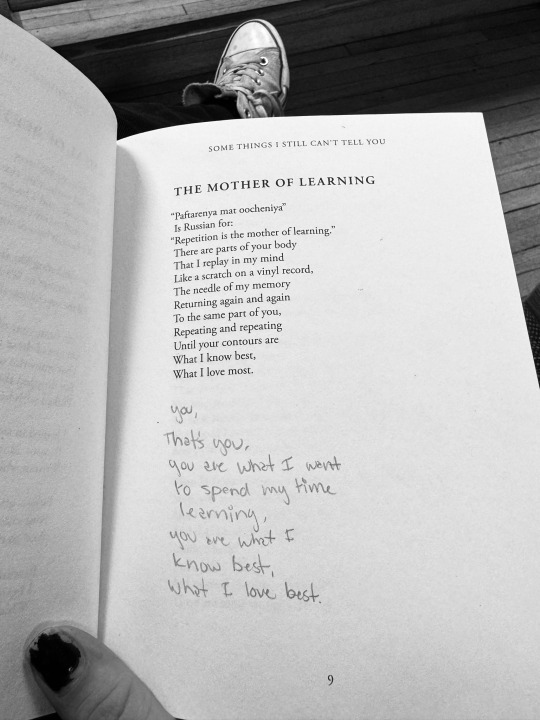 SOME THINGS I STILL CAN'T TELL YOU
THE MOTHER OF LEARNING
“Paftarenya mat oocheniya”
Is Russian for:
“Repetition is the mother of learning.”
There are parts of your body
That I replay in my mind
Like a scratch on a vinyl record,
The needle of my memory
Returning again and again
To the same part of you,
Repeating and repeating
Until your contours are
What I know best,
What I love most.
you,
That's you,
you are what I want
to spend my time
learning,
you are what I
know best,
what I love best.
9